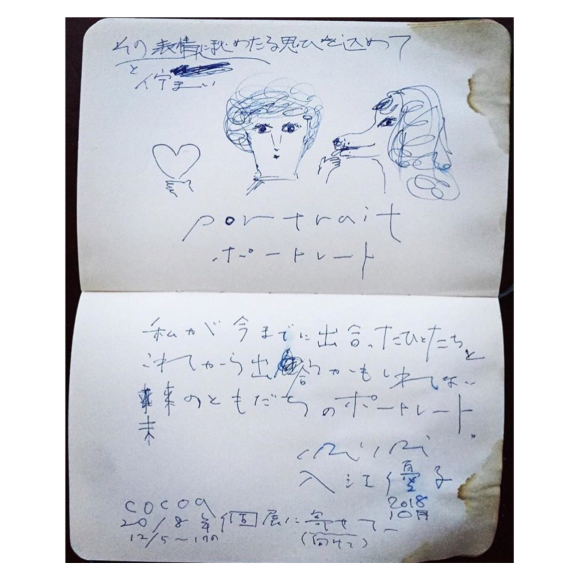 その表情に秘めたる思ひを込めて
と佇まい
portrait
ポートレート
私が今までに出合ったひとたちと
これから出合うかもしれない
未来のともだちのポートレート。
入江優子
2018
10月
cocoa
2018年個展に寄せて
12/5〜17の
(向けて)